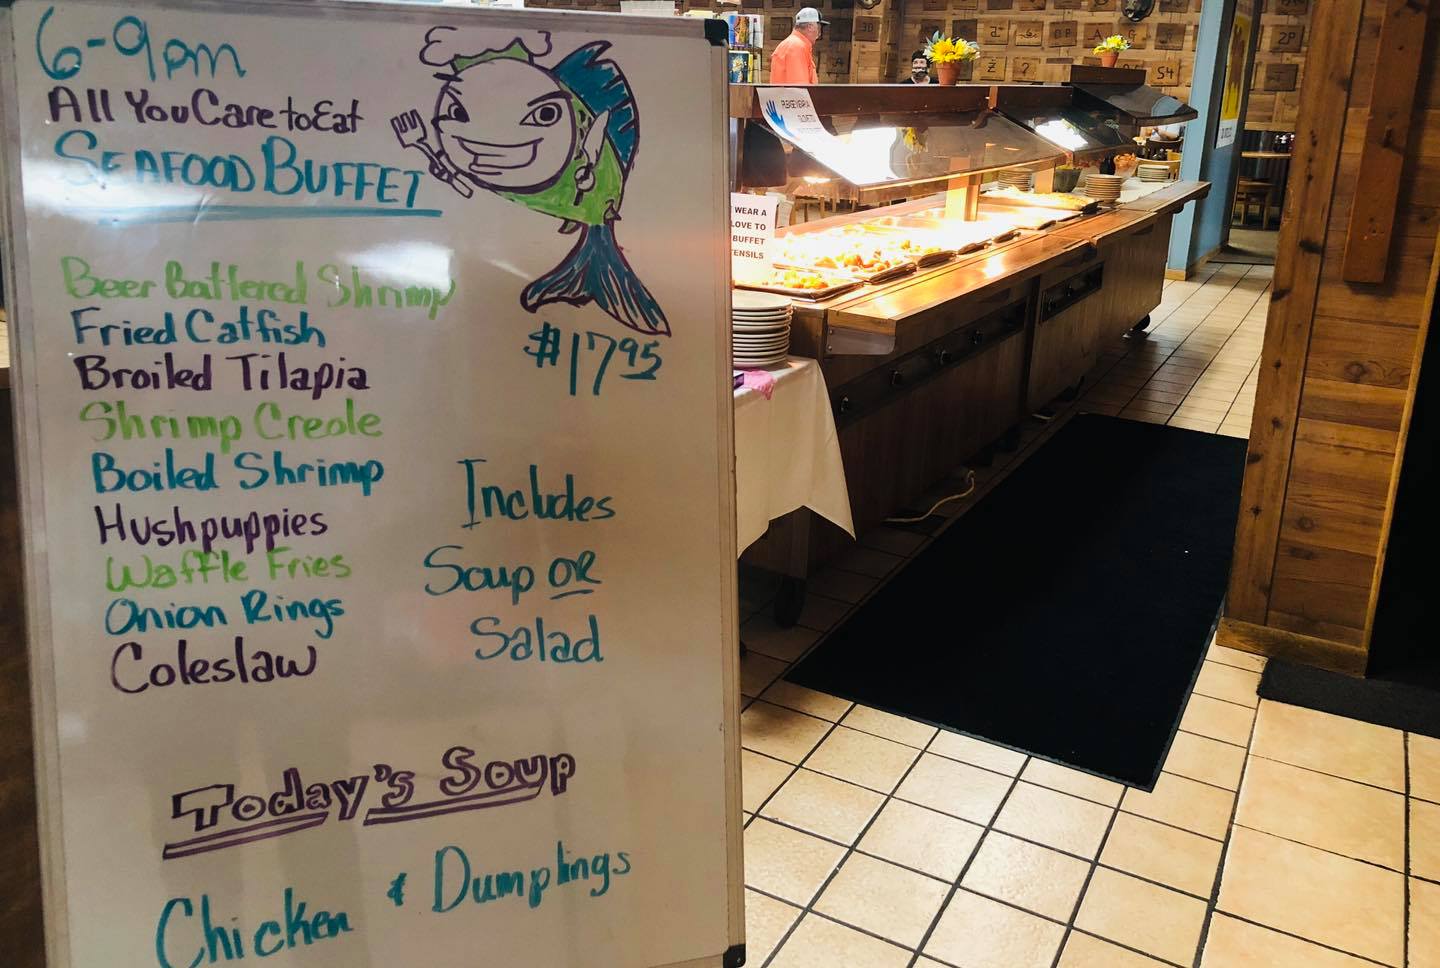 6-9pm
All You Care to Eat
SEAFOOD BUFFET
Beer Battered Shrimp
Fried Catfish
Broiled Tilapia
Shrimp Creole
Boiled Shrimp
Hushpuppies
Waffle Fries
Onion Rings
Coleslaw
$17.95
Includes
Soup OR
Salad
Today's Soup
Chicken & Dumplings
PLEASE WEAR A
GLOVE TO
WEAR A
LOVE TO
BUFFET
TENSILS
S4
2P